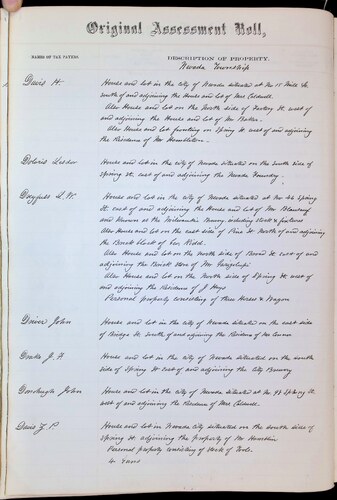 Original Assessment Roll,
NAMES OF TAX PAYERS.
DESCRIPTION OF PROPERTY.
Nevada Township
Davis H.
House and lot in the city of Nevada situated at No 15 Mill St
south of and adjoining the House and lot of Mrs Caldwell.
Also House and lot on the North side of Factory St west of
and adjoining the House and lot of Mr
Also House and lot fronting on Spring St west of and adjoining
the Residence of Mr Hamilton
House and lot in the city of Nevada situated on the south side of
Spring St. east of and adjoining the Nevada Foundry.
Dreyfuss L. W.
House and lot in the city of Nevada situated at No 46 Spring
St east of and adjoining the House and lot of Mr
and known as the Milwaukee Brewery including stock & fixtures
Also House and lot on the east side of Pine St North of and adjoining
the Brick Block of Geo Kidd.
Also House and lot on the north side of Broad St east of and
adjoining the Brick Store of Mr
Also House and lot on the North side of Spring St west of
and adjoining the Residence of J Hays
Personal property consisting of three Horses & Wagon
Driver John
House and lot in the city of Nevada situated on the east side
of Bridge St south of and adjoining the Residence of Mr
Drake J. H.
House and lot in the city of Nevada situated on the south
side of Spring St east of and adjoining the City Brewery
John
House and lot in the city of Nevada situated at No 99 Spring St
west of and adjoining the Residence of Mrs Caldwell.
Davis Z P.
House and lot in Nevada City situated on the south side of
Spring St adjoining the property of Mr Hamilton
Personal property consisting of Stock of Tools.